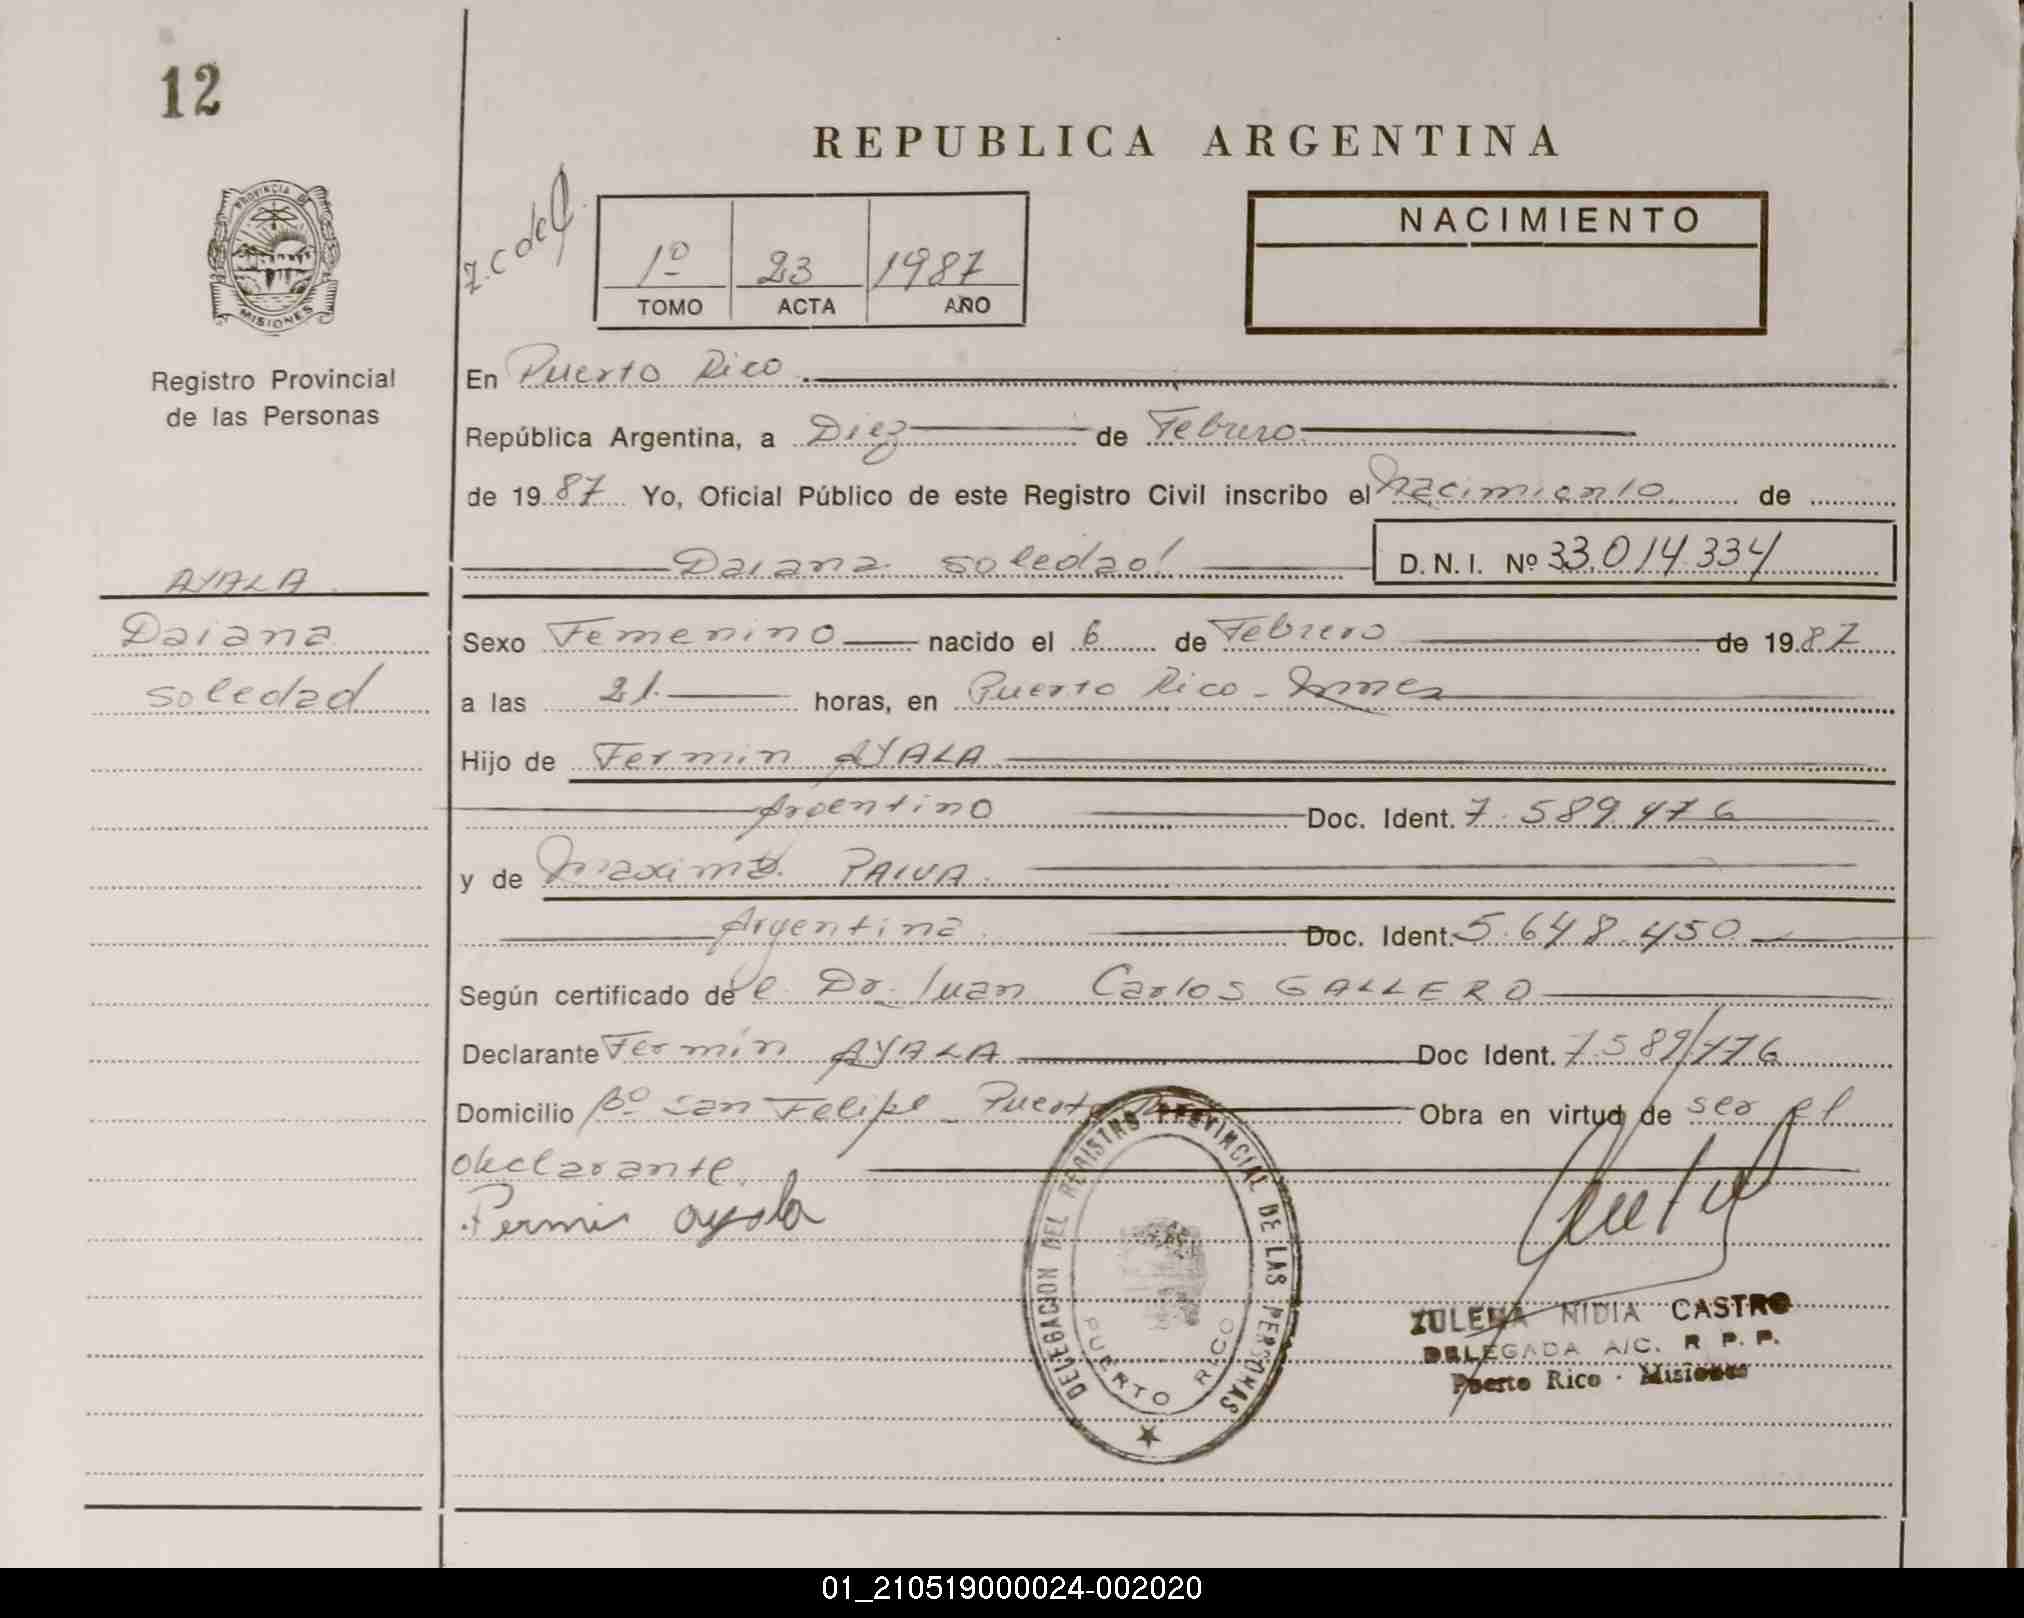 12
REPUBLICA ARGENTINA
PROVINCIA DE
MISIONES
NACIMIENTO
1º 23 1987
TOMO ACTA AÑO
Registro Provincial
de las Personas
En Puerto Rico
República Argentina, a Diez de Febrero
de 1987 Yo, Oficial Público de este Registro Civil inscribo el Nacimiento de
Daiana Soledad D.N.I. Nº 33.014.334
AYALA
Daiana
Soledad
Sexo Femenino nacido el 6 de Febrero de 1987
a las 21 horas, en Puerto Rico -
Hijo de Fermin AYALA
Argentino Doc. Ident. 7.589.476
y de Maxima PAIVA
Argentina Doc. Ident. 5.648.450
Según certificado de l Dr. Juan Carlos GALLERO
Declarante Fermin AYALA Doc Ident. 7.589.476
Domicilio Bº San Felipe - Puerto Obra en virtud de ser el
declarante.
Fermin ayala
DELEGACION DEL REGISTRO PROVINCIAL DE LAS PERSONAS
PUERTO RICO
ZULEMA NIDIA CASTRO
DELEGADA A/C. R P. P.
Puerto Rico - Misiones
01_210519000024-002020